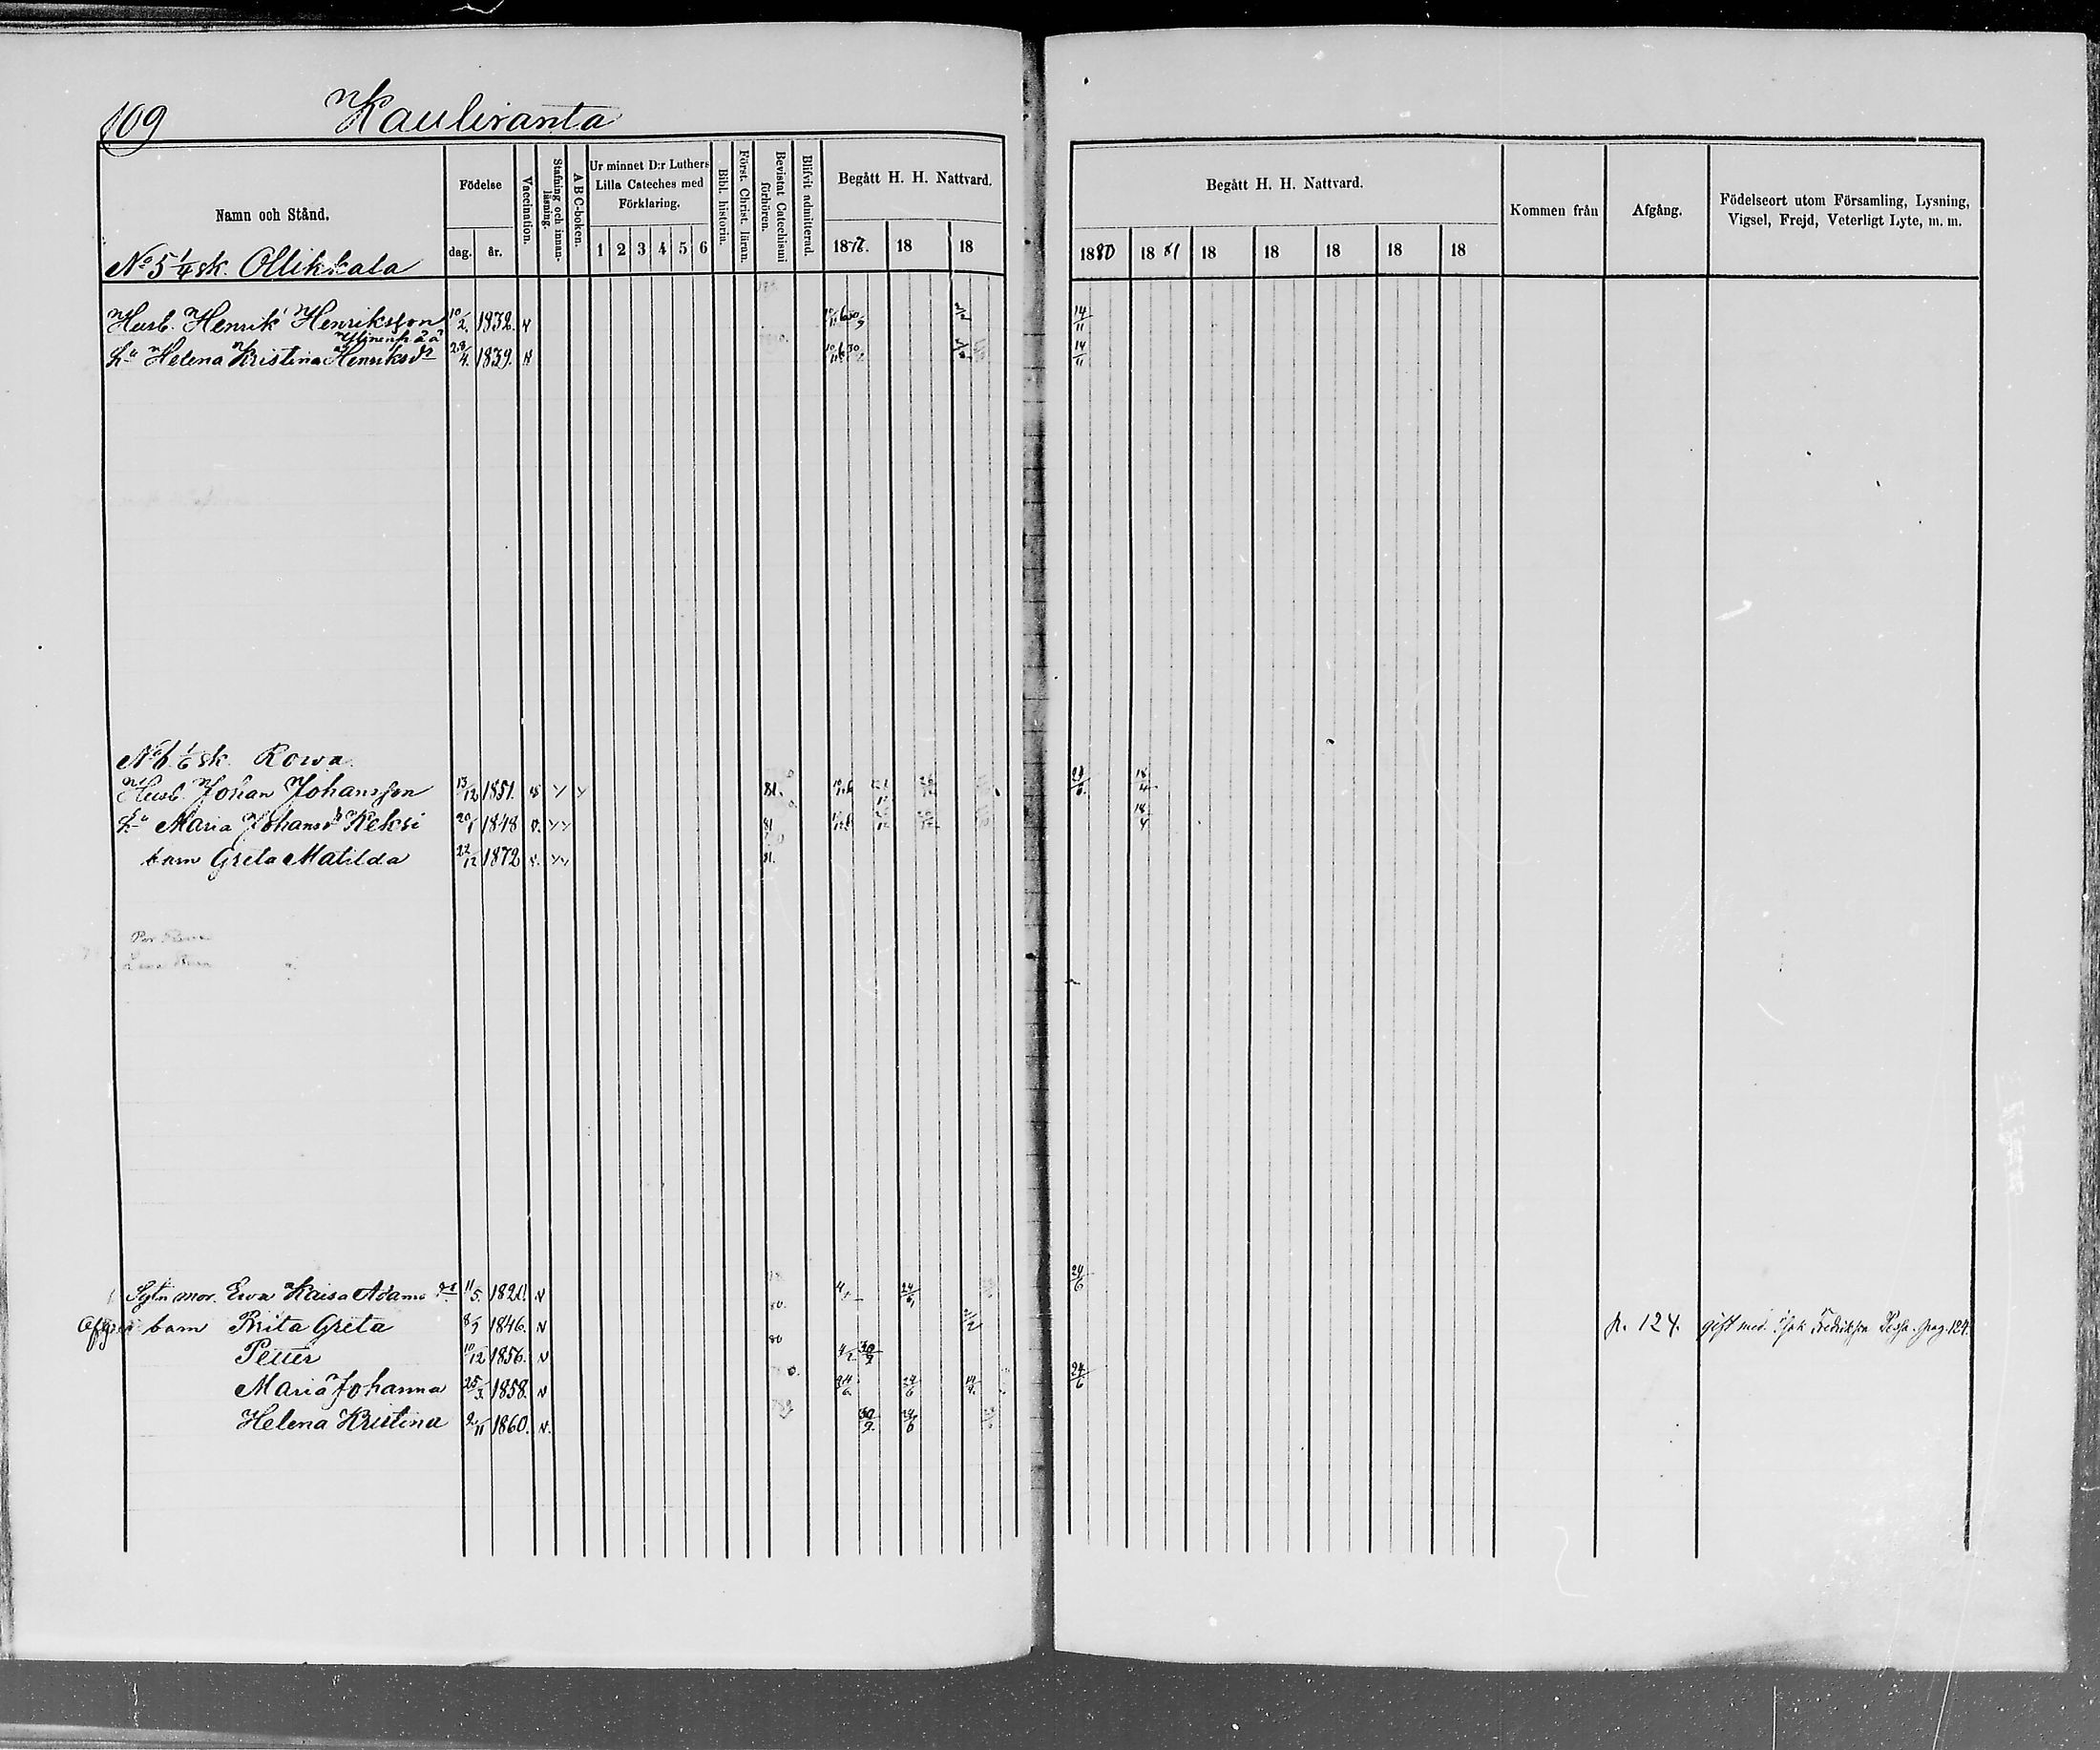 109 Kauliranta
Namn och Stånd.
Födelse
dag. år.
Vaccination.
Stafning och innanläsning.
A B C-boken.
Ur minnet D:r Luthers Lilla Cateches med Förklaring.
1 2 3 4 5 6
Bibl. historia.
Först. Christ. läran.
Bevistat Catechismi förhören.
Blifvit admitterad.
Begått H. H. Nattvard.
18 18 18
Begått H. H. Nattvard.
1880 1881 18 18 18 18 18
Kommen från
Afgång.
Födelseort utom Församling, Lysning, Vigsel, Frejd, Veterligt Lyte, m. m.
No 5 1/4 sk. Ollikkala
Husb. Henrik Henriksson 10/2. 1832. 14/11
Ylinenpää
Hu Helena Kristina Henriksdr 28/4. 1839. 14/11
No 6 1/6 sk. Rowa
Husb. Johan Johansson 13/12 1851. 81. 18/4
Hu Maria Johansdr Keksi 20/1 1848 81 18/4
barn Greta Matilda 22/12 1872 81.
mor. Ewa Kaisa Adamsdr 11/5. 1821. 24/6
barn Brita Greta 8/9 1846. 80. p. 124. gift med Isak Fredriksson pag. 124.
Petter 10/12 1856. 80 4/2 30/9
Maria Johanna 25/3. 1858. 24/6 24/6 24/6
Helena Kristina 2/11 1860. 30/9. 24/6